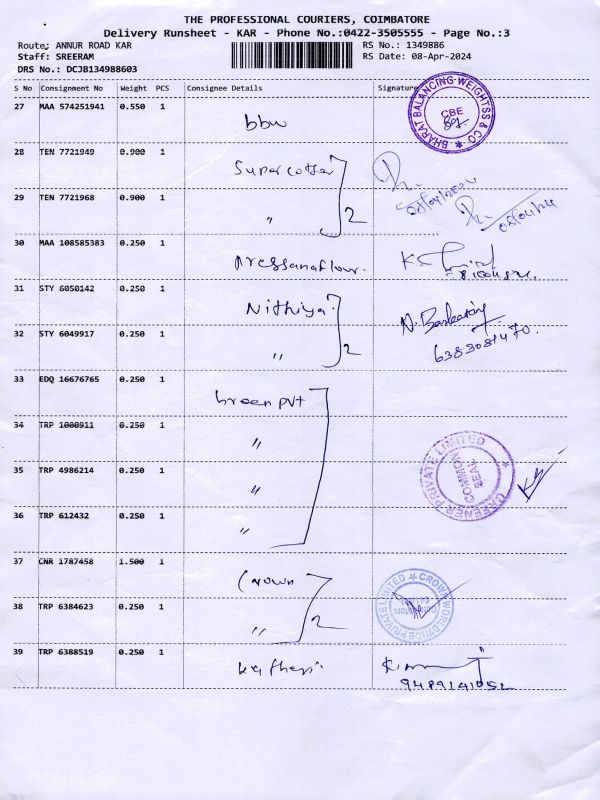 THE PROFESSIONAL COURIERS, COIMBATORE
Delivery Runsheet - KAR - Phone No.:0422-3505555 - Page No.:3
Route: ANNUR ROAD KAR
RS No.: 1349886
Staff: SREERAM
RS Date: 08-Apr-2024
DRS No.: DCJB134988603
S No Consignment No Weight PCS Consignee Details Signature
27 MAA 574251941 0.550 1
BHARAT BALANCING WEIGHTSS & CO
CBE
28 TEN 7721949 0.900 1
08/04/2024
29 TEN 7721968 0.900 1 " 2
08/04/24
30 MAA 108585383 0.250 1
31 STY 6050142 0.250 1 Nithiya
32 STY 6049917 0.250 1 " 2
6383081470
33 EDQ 16676765 0.250 1 Green pvt
34 TRP 1000911 0.250 1 "
35 TRP 4986214 0.250 1 "
PRIVATE LIMITED
COMMON SEAL
36 TRP 612432 0.250 1 "
37 CNR 1787458 1.500 1 Crown
CROWN WORLDWIDE PRIVATE LIMITED
38 TRP 6384623 0.250 1 " 2
39 TRP 6388519 0.250 1
9489141052